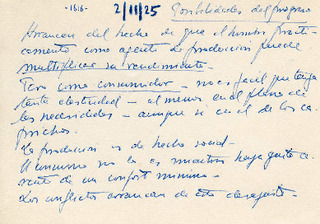 -1616- 2/11/25 Posibilidades del progreso
Arrancan del hecho de que el hombre, prácti-
camente como agente de producción puede
multiplicar su rendimiento-
Pero como consumidor - no es fácil que tenga
tanta elasticidad - al menos en el plano de
las necesidades - aunque sí en el de los ca-
prichos.
La producción es de hecho social-
El consumo no lo es mientras haya gente a-
sente de un confort mínimo-
Los conflictos arrancan de este desajuste-